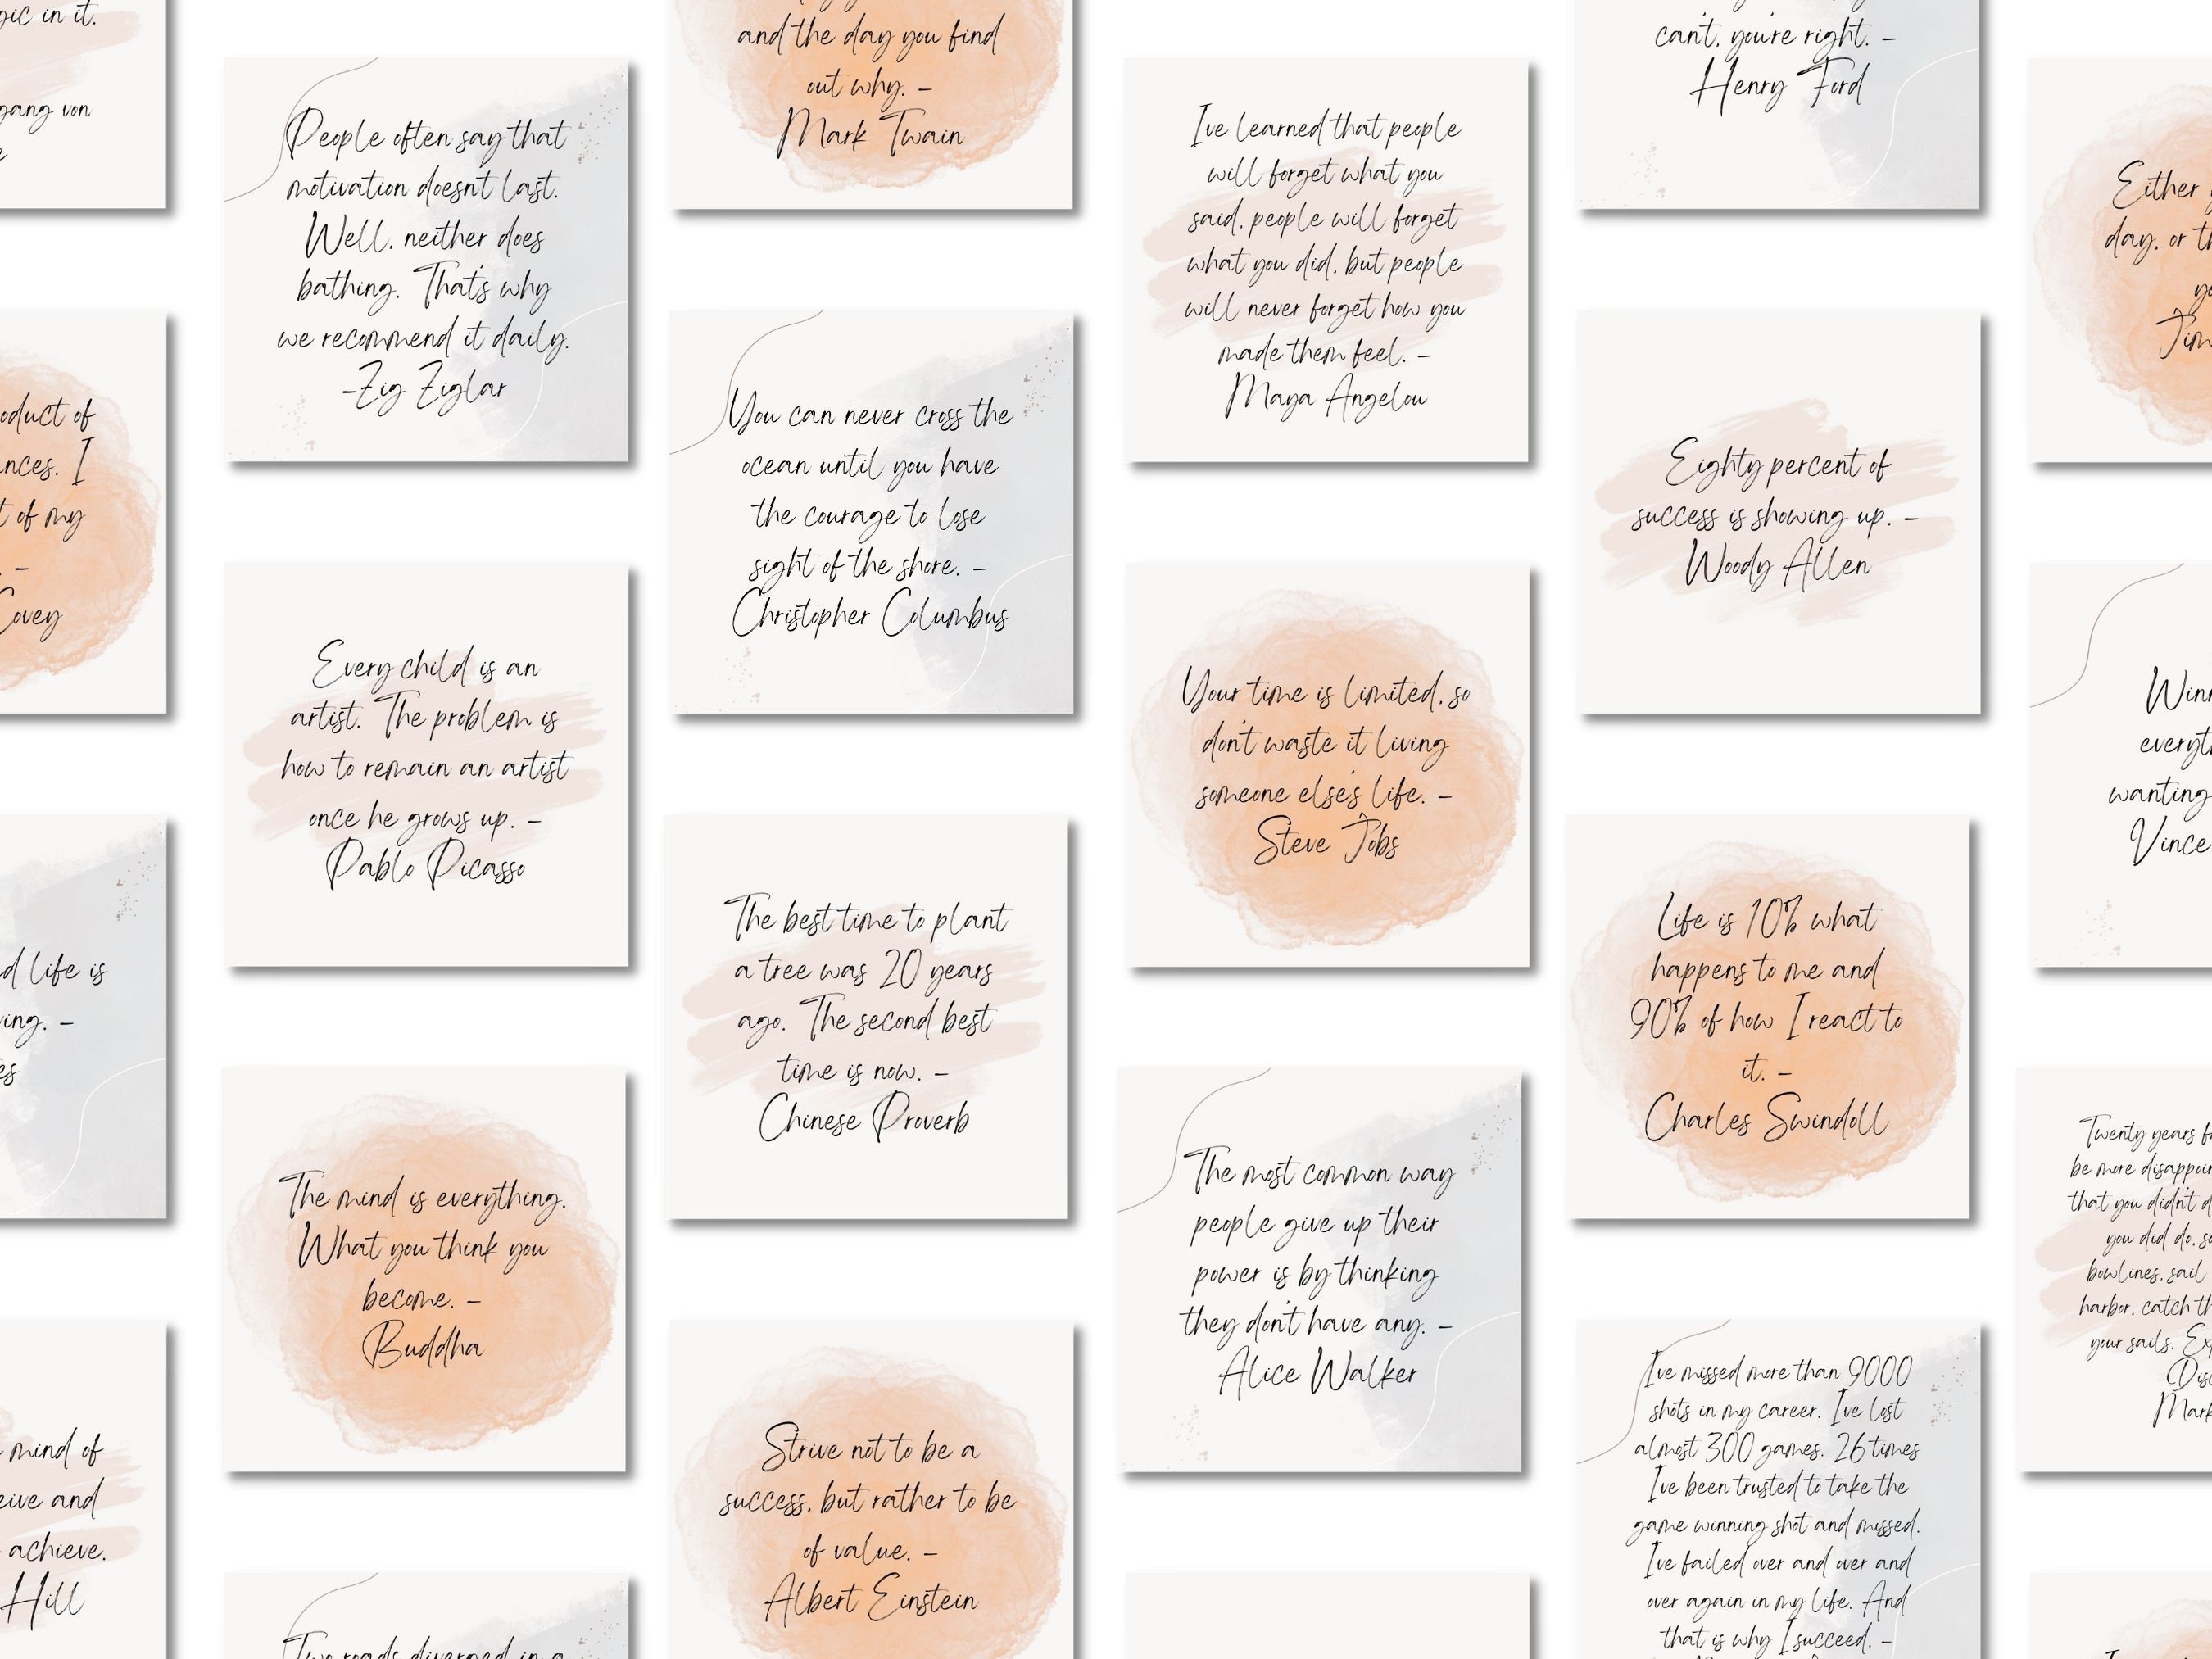 gic in it.
gang von
e
oduct of
nces. I
t of my
. –
Covey
d life is
ing. –
es
mind of
eive and
achieve.
Hill
People often say that
motivation doesn't last.
Well, neither does
bathing. That's why
we recommend it daily.
-Zig Ziglar
Every child is an
artist. The problem is
how to remain an artist
once he grows up. –
Pablo Picasso
The mind is everything.
What you think you
become. –
Buddha
Two roads diverged in a
and the day you find
out why. –
Mark Twain
You can never cross the
ocean until you have
the courage to lose
sight of the shore. –
Christopher Columbus
The best time to plant
a tree was 20 years
ago. The second best
time is now. –
Chinese Proverb
Strive not to be a
success, but rather to be
of value. –
Albert Einstein
I've learned that people
will forget what you
said, people will forget
what you did, but people
will never forget how you
made them feel. –
Maya Angelou
Your time is limited, so
don't waste it living
someone else's life. –
Steve Jobs
The most common way
people give up their
power is by thinking
they don't have any. –
Alice Walker
can't, you're right. –
Henry Ford
Eighty percent of
success is showing up. –
Woody Allen
Life is 10% what
happens to me and
90% of how I react to
it. –
Charles Swindoll
I've missed more than 9000
shots in my career. I've lost
almost 300 games. 26 times
I've been trusted to take the
game winning shot and missed.
I've failed over and over and
over again in my life. And
that is why I succeed. –
Either
day, or th
yo
Jim
Winn
everyt
wanting
Vince
Twenty years f
be more disappoin
that you didn't d
you did do, so
bowlines, sail
harbor, catch th
your sails. Ex
Dis
Mark